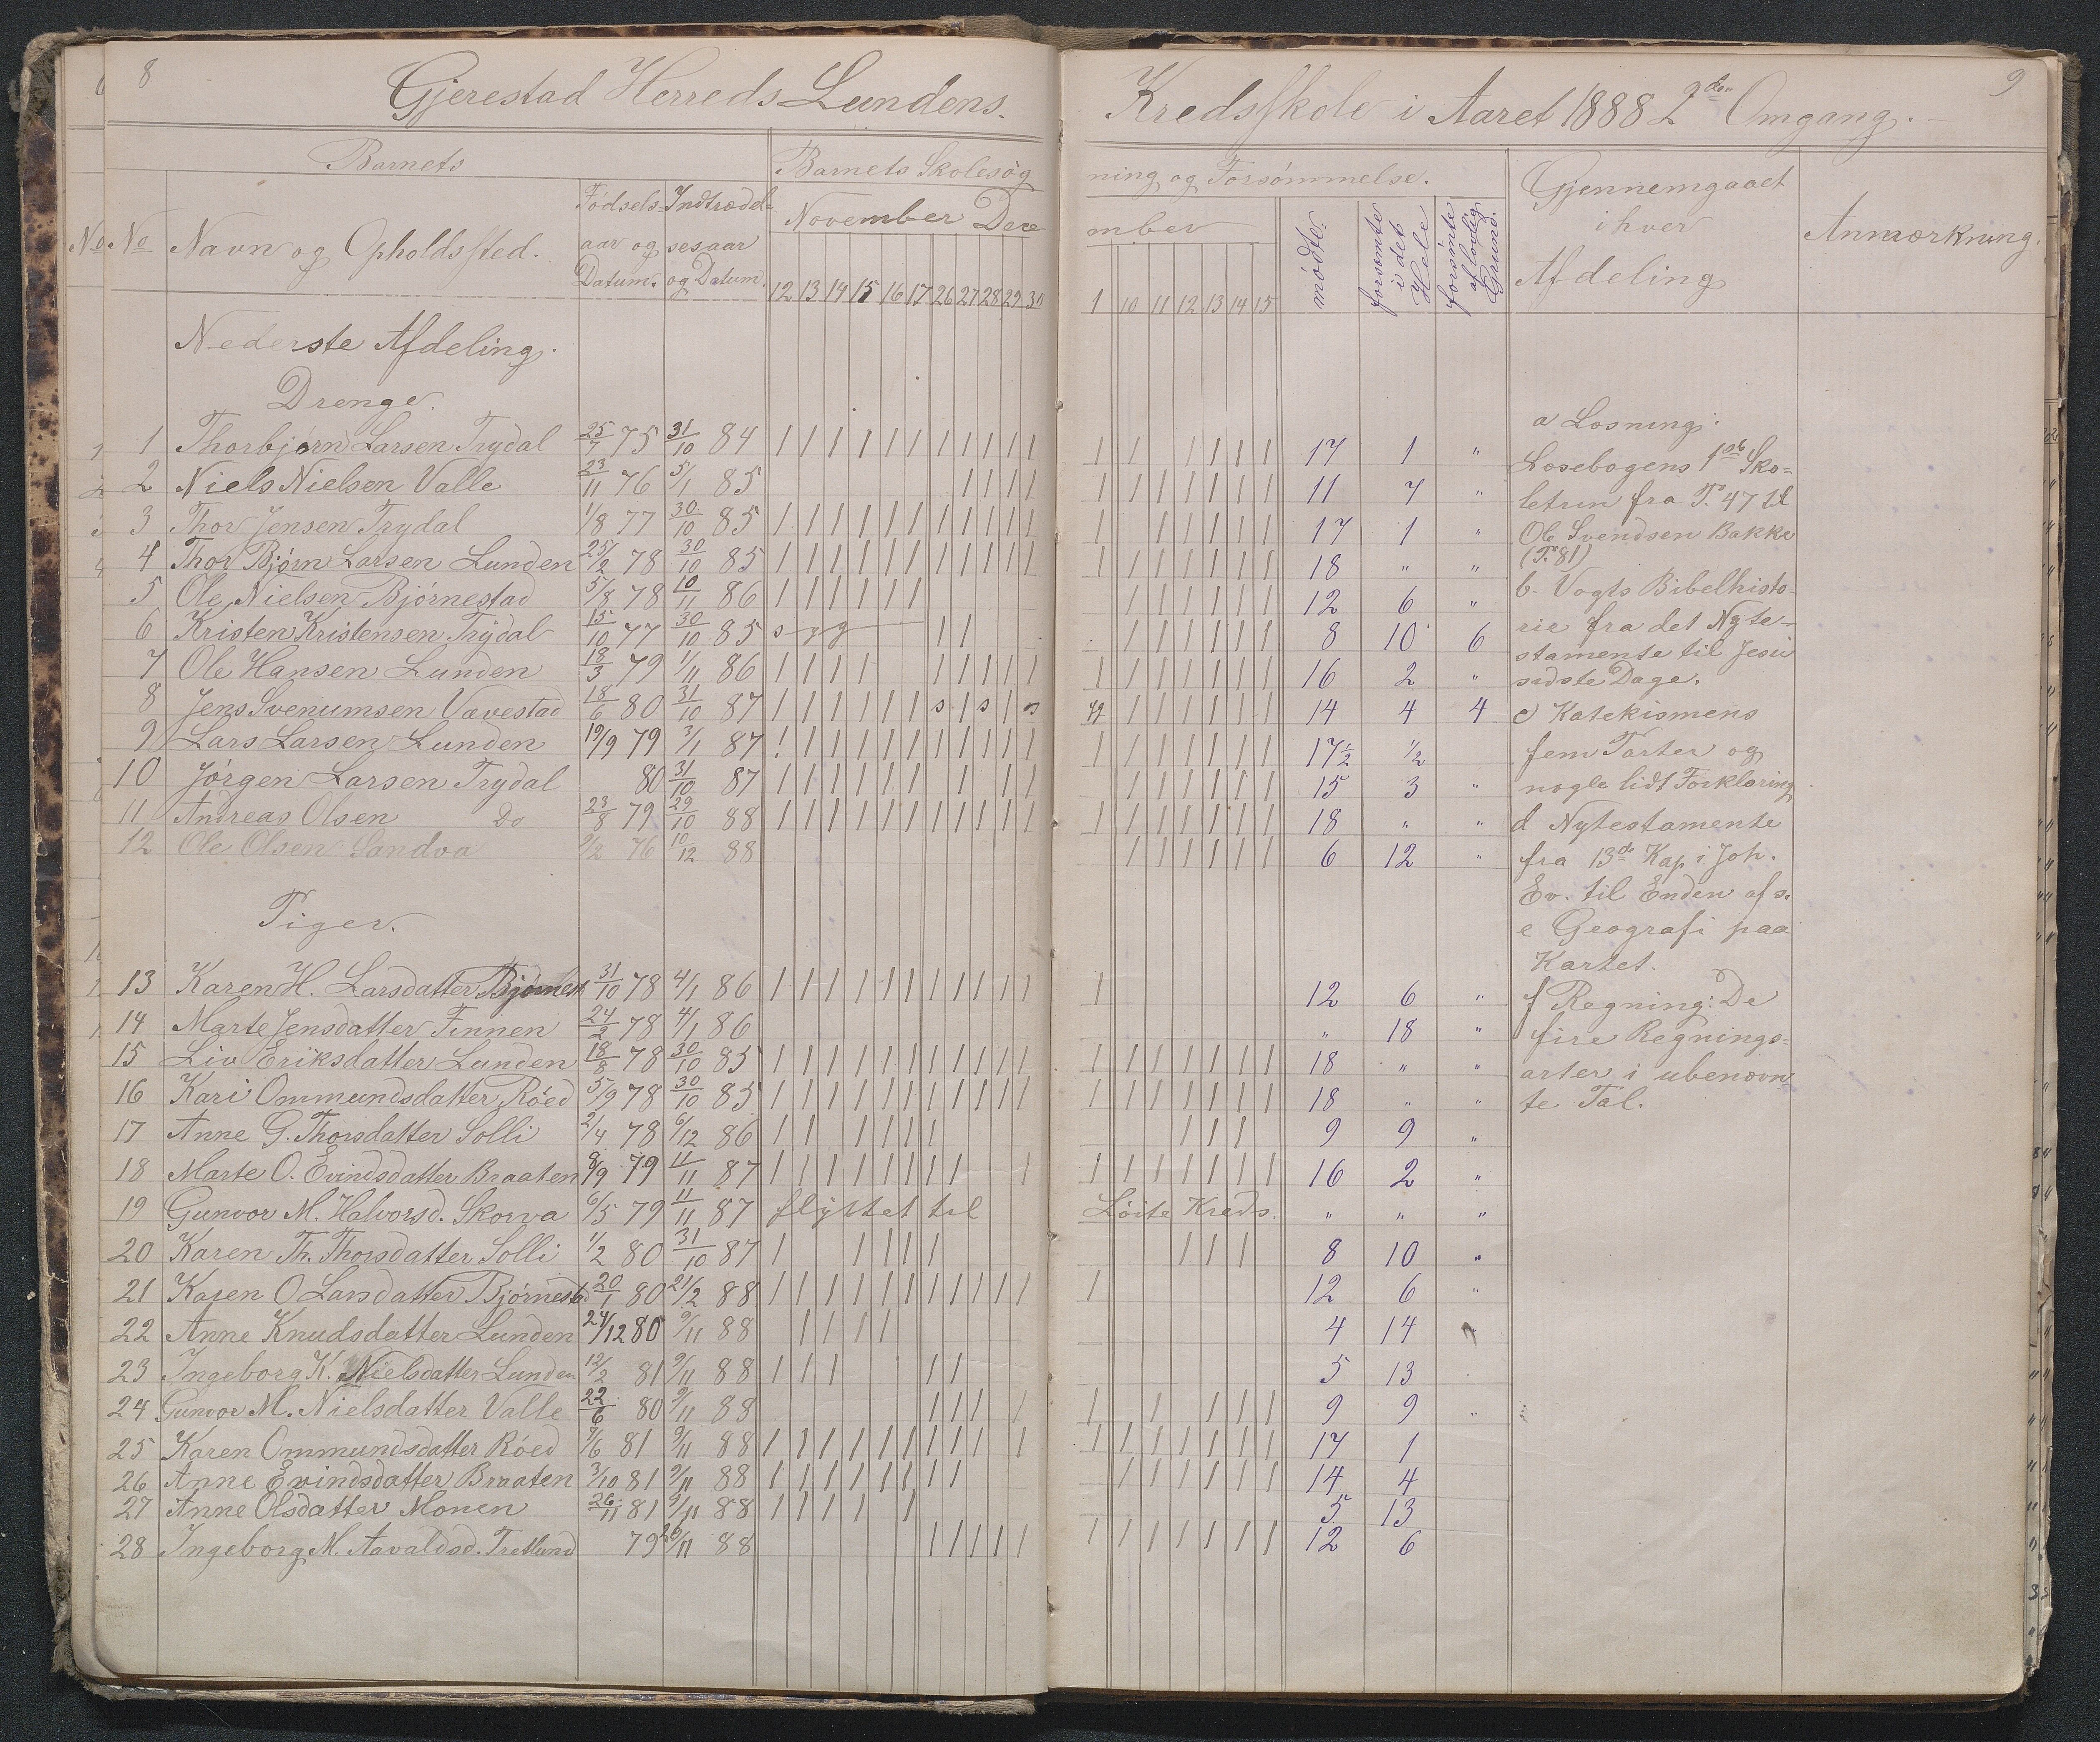 8
Gjerestad Herreds Lundens
Kredsskole i Aaret 1888 2den Omgang.
9
Barnets
Barnets Skolesög
ning og Forsömmelse.
Gjennemgaaet
i hver
Afdeling
Anmærkning.
No No Navn og Opholdssted.
Födsels-
aar og
Datum.
Indtrædel-
sesaar
og Datum.
November Dece
mber
12 13 14 15 16 17 26 27 28 29 30
1 10 11 12 13 14 15
mödte.
forsömte i det Hele
forsömte af lovlig Grund.
Nederste Afdeling.
Drenge.
1 Thorbjörn Larsen Trydal 25/7 75 31/10 84 | | | | | | | | | | | | | | | | | 17 1 "
2 Niels Nielsen Valle 23/11 76 5/1 85 | | | | | | | | | | | 11 7 "
3 Thor Jensen Trydal 1/8 77 30/10 85 | | | | | | | | | | | | | | | | | 17 1 "
4 Thor Björn Larsen Lunden 25/2 78 30/10 85 | | | | | | | | | | | | | | | | | | 18 " "
5 Ole Nielsen Björnestad 5/8 78 10/11 86 | | | | | | | | | | | | 12 6 "
6 Kristen Kristensen Trydal 15/10 77 30/10 85 syg | | | | | | | | 8 10 6
7 Ole Hansen Lunden 18/3 79 1/11 86 | | | | | | | | | | | | | | | | 16 2 "
8 Jens Svenumsen Vævestad 18/6 80 31/10 87 | | | | | | s | s | s | | | | | | 14 4 4
9 Lars Larsen Lunden 19/9 79 3/1 87 | | | | | | | | | | | | | | | | | | 17½ ½
10 Jörgen Larsen Trydal 80 31/10 87 | | | | | | | | | | | | | | | 15 3 "
11 Andreas Olsen Do 23/8 79 29/10 88 | | | | | | | | | | | | | | | | | | 18 " "
12 Ole Olsen Sandva 9/2 76 10/12 88 | | | | | | 6 12 "
Piger.
13 Karen H. Larsdatter Björnest 31/10 78 4/1 86 | | | | | | | | | | | | 12 6 "
14 Marte Jensdatter Finnen 24/2 78 4/1 86 " 18 "
15 Liv Eriksdatter Lunden 18/8 78 30/10 85 | | | | | | | | | | | | | | | | | | 18 " "
16 Kari Ommundsdatter Röed 5/9 78 30/10 85 | | | | | | | | | | | | | | | | | | 18 " "
17 Anne G. Thorsdatter Solli 2/4 78 6/12 86 | | | | | | | | | | 9 9 "
18 Marte O. Evindsdatter Braaten 8/9 79 11/11 87 | | | | | | | | | | | | | | | | 16 2 "
19 Gunvor M. Halvorsd. Skorva 6/5 79 11/11 87 flyttet til Löite Kreds. " " "
20 Karen Th. Thorsdatter Solli 1/2 80 31/10 87 | | | | | | | | 8 10 "
21 Karen O Larsdatter Björnestd 20/1 80 21/2 88 | | | | | | | | | | | | 12 6 "
22 Anne Knudsdatter Lunden 24/12 80 9/11 88 | | | | 4 14 "
23 Ingeborg K. Nielsdatter Lunden 12/2 81 9/11 88 | | | | | 5 13
24 Gunvor M. Nielsdatter Valle 22/6 80 9/11 88 | | | | | | | | | 9 9 "
25 Karen Ommundsdatter Röed 7/6 81 9/11 88 | | | | | | | | | | | | | | | | | 17 1
26 Anne Evindsdatter Braaten 3/10 81 9/11 88 | | | | | | | | | | | | | | 14 4
27 Anne Olsdatter Monen 26/11 81 9/11 88 | | | | | 5 13
28 Ingeborg M. Aavaldsd. Tretlund 79 26/11 88 | | | | | | | | | | | | 12 6
a Læsning:
Læsebogens 1ste Sko-
letrin fra P. 47 til
Ole Svendsen Bakke
(P. 81)
b. Vogts Bibelhisto-
rie fra det Nyte-
stamente til Jesu
sidste Dage.
c) Katekismens
fem Parter og
nogle lidt Forklaring
d Nytestamente
fra 13de Kap i Joh.
Ev. til Enden af s.
e Geografi paa
Kartet.
f Regning: De
fire Regnings-
arter i ubenævn
te Tal.